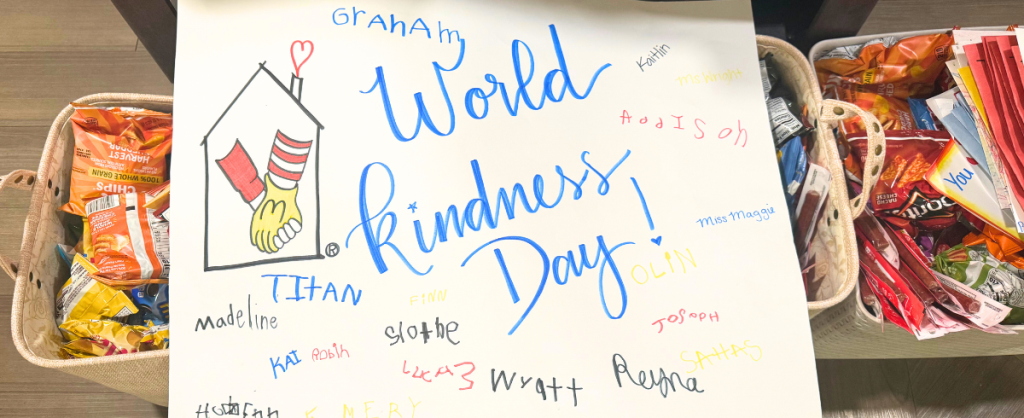 GrAhAm
World
Kindness
Day!
Kaitlin
McKnight
AddISoN
Miss Maggie
OLIN
TITAN
FINN
Madeline
Slothe
JosoPH
KAI
Robin
SAHAS
Wyatt
Reyna
EMERY
®
HARVEST
CHEDDAR
100% WHOLE GRAIN
CHIPS
NACHO
CHEESE
You